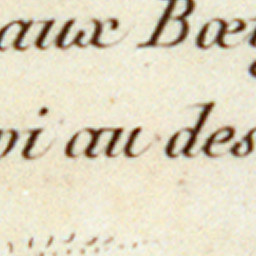 aux Bœ
oi au des